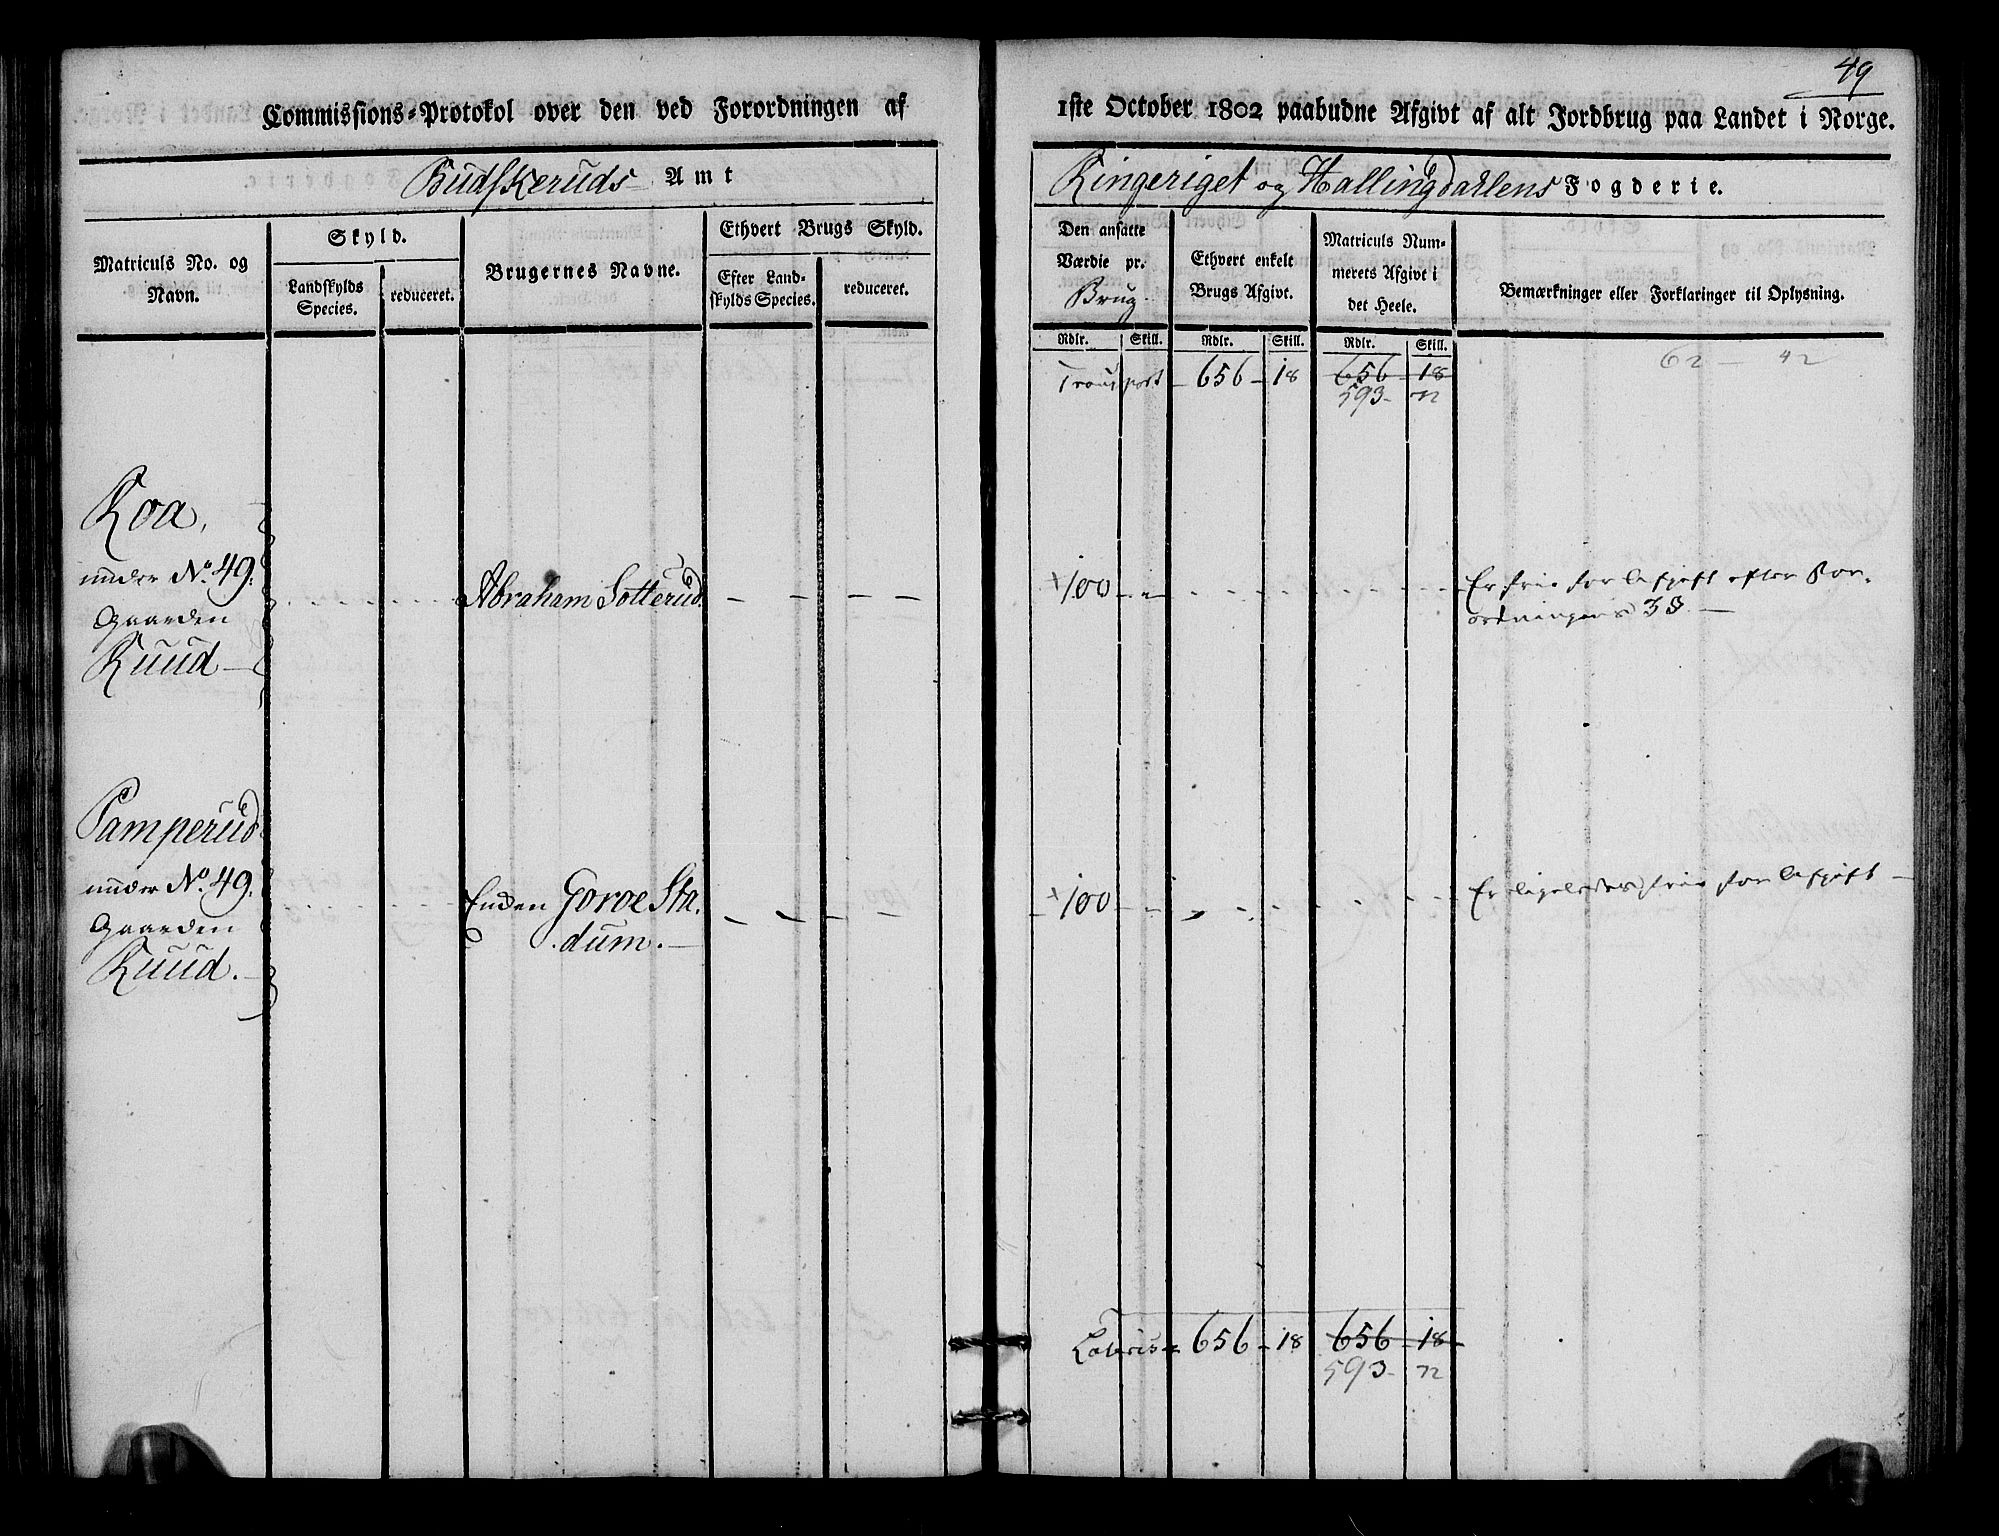 49
Commissions-Protokol over den ved Forordningen af
1ste October 1802 paabudne Afgivt af alt Jordbrug paa Landet i Norge.
Budskeruds Amt
Ringeriget og Hallingdahlens Fogderie.
Matriculs No. og
Navn.
Skyld.
Landskylds
Species.
reduceret.
Brugernes Navne.
Ethvert Brugs Skyld.
Efter Land-
skylds Species.
reduceret.
Den ansatte
Værdie pr.
Brug.
Rdlr. Skill.
Ethvert enkelt
Brugs Afgivt.
Rdlr. Skill.
Matriculs Num-
merets Afgivt i
det Heele.
Rdlr. Skill.
Bemærkninger eller Forklaringer til Oplysning.
Transport 656 18 656 18 62 - 42
593 72
Roa,
under No. 49.
Gaarden
Ruud
Abraham Sotterud 100
Er frie for Afgift efter For-
ordningens 3 §
Pamperud
under No. 49.
Gaarden
Ruud.
Enken Goroe Sta-
dum.
100
Er ligeledes frie for Afgift
Lateris 656 18 656 18
593 72